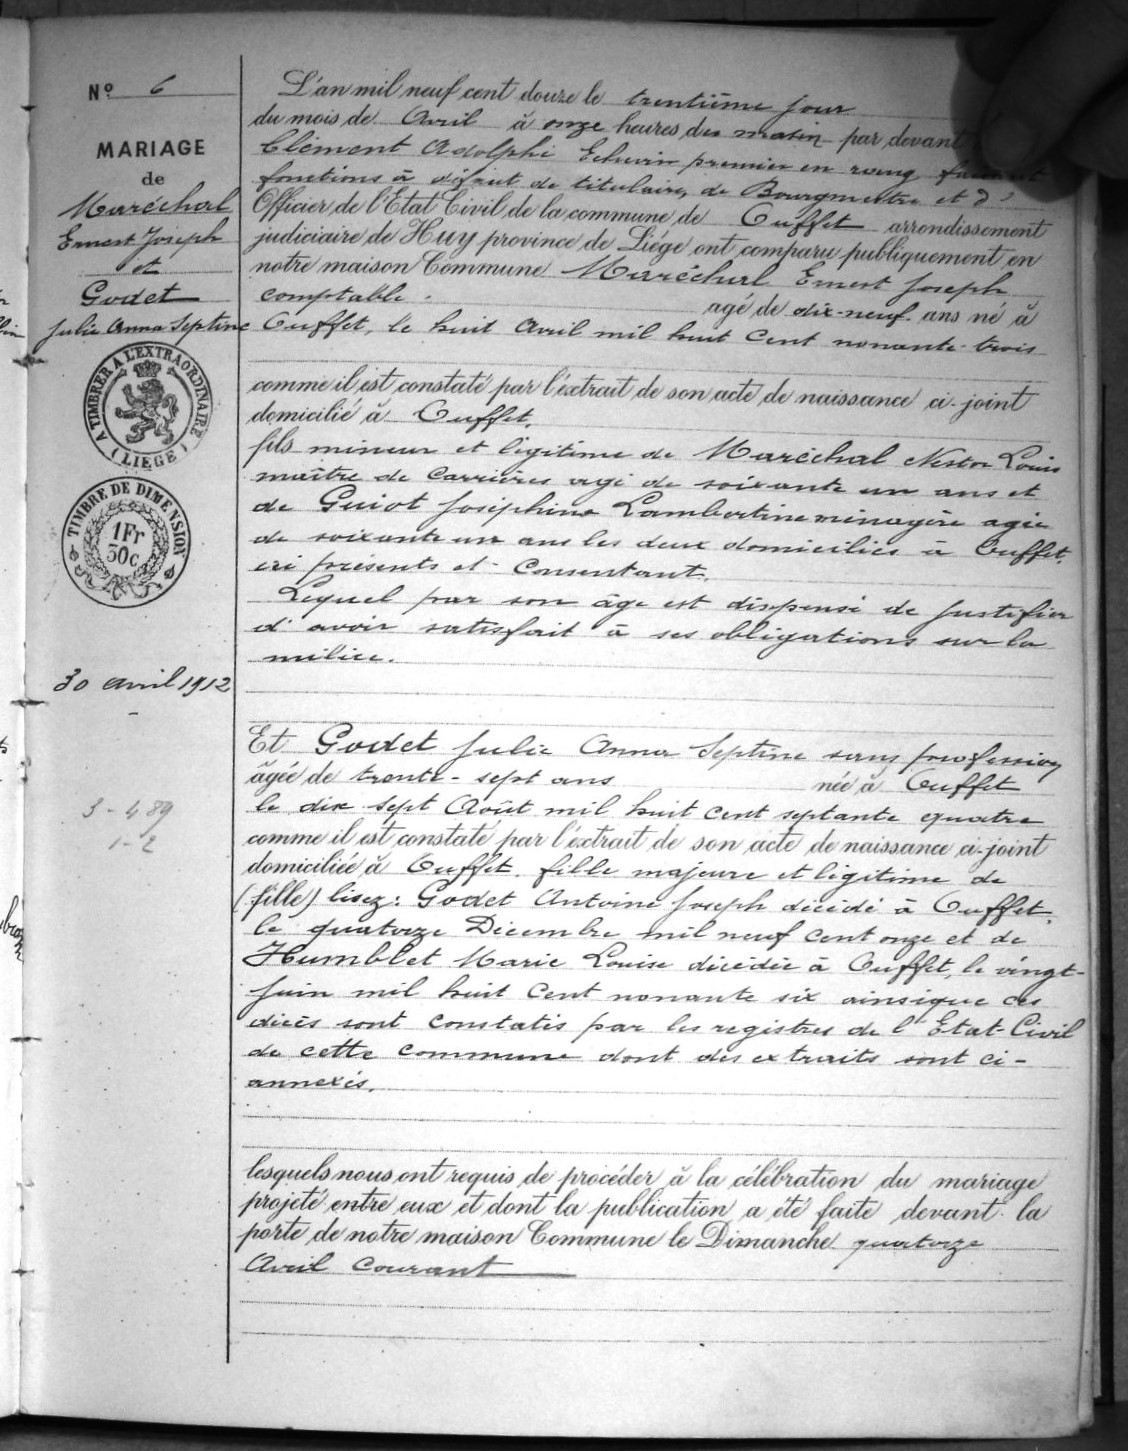 Nº 6
MARIAGE
de
Maréchal
Ernest Joseph
et
Godet
Julie Anna Septine
A TIMBRER A L'EXTRAORDINAIRE
(LIEGE)
TIMBRE DE DIMENSION
1Fr
30c
30 avril 1912
3-489
1-2
L'an mil neuf cent douze le trentième jour
du mois de Avril à onze heures du matin par devant
Clément Adolphe Echevin premier en rang
fonctions à défaut de titulaire, de Bourgmestre et d'
Officier de l'Etat Civil de la commune de Ouffet arrondissement
judiciaire de Huy province de Liége ont comparu publiquement en
notre maison Commune Maréchal Ernest Joseph
comptable. agé de dix-neuf ans né à
Ouffet, le huit Avril mil huit cent nonante-trois
comme il est constaté par l'éxtrait de son acte de naissance ci-joint
domicilié à Ouffet.
fils mineur et légitime de Maréchal Nestor Louis
maître de carrières agé de soixante un ans et
de Guiot Joséphine Lambertine ménagère agée
de soixante un ans les deux domiciliés à Ouffet.
ici présents et consentant.
Lequel par son âge est dispensé de justifier
d'avoir satisfait à ses obligations sur la
milice.
Et Godet Julie Anna Septine sans profession
âgée de trente-sept ans née à Ouffet
le dix sept Août mil huit cent septante quatre
comme il est constaté par l'éxtrait de son acte de naissance ci-joint
domiciliée à Ouffet. fille majeure et légitime de
(fille) lisez: Godet Antoine Joseph décédé à Ouffet,
le quatorze Décembre mil neuf cent onze et de
Humblet Marie Louise décédée à Ouffet, le vingt-
Juin mil huit cent nonante six ainsi que ces
décès sont constatés par les registres de l'Etat-Civil
de cette commune dont des extraits sont ci-
annexés.
lesquels nous ont requis de procéder à la célébration du mariage
projeté entre eux et dont la publication a été faite devant la
porte de notre maison Commune le Dimanche quatorze
Avril courant